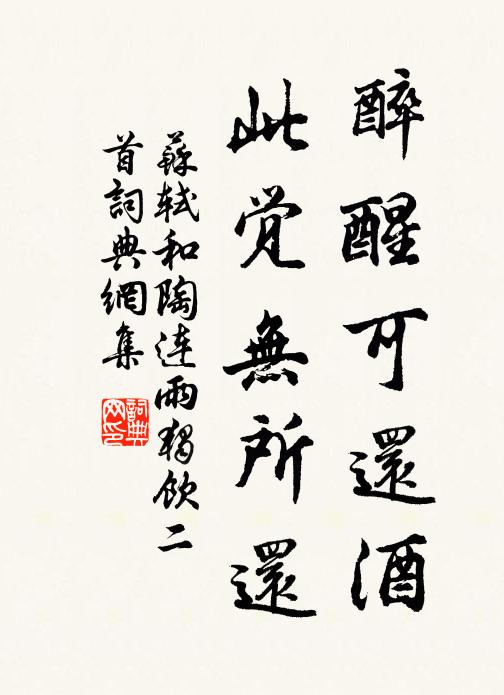 醉醒可還酒
此覺無所還
蘇軾和陶連雨獨飲二
首詞典網集
詞典
网印